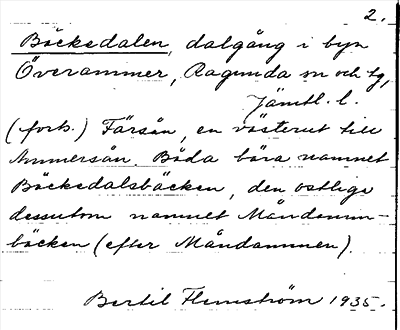 2.
Böcksdalen, dalgång i byn
Överammer, Ragunda sn och tg,
Jämtl. l.
(forts.) Färsån, en västerut till
Ammersån. Båda bära namnet
Böcksdalsbäcken, den östliga
dessutom namnet Måndamm-
bäcken (efter Måndammen).
Bertil Flemström 1935.